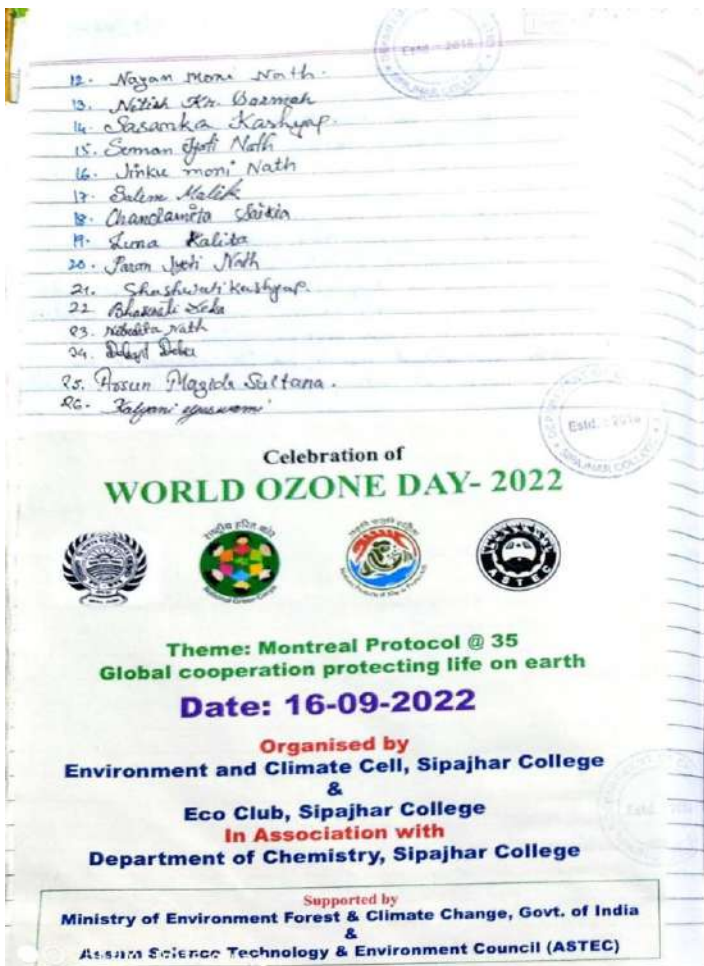 Estd. - 2016
SIPAJHAR COLLEGE
12. Nayan Moni Nath.
13. Nitish Kr. Barmah
14. Sasanka Kashyap.
15. Seman Jyoti Nath
16. Jinku moni Nath
17. Salem Malik
18. Chandamita Saikia
19. Luna Kalita
20. Paran Jyoti Nath
21. Shashwati kashyap.
22 Bhaswati Deka
23. Nibedita Nath
24. Deka
25. Sultana.
26. Kalyani
Estd. - 2016
SIPAJHAR COLLEGE
Celebration of
WORLD OZONE DAY- 2022
राष्ट्रीय हरित कोर
National Green Corps
ASTEC
Theme: Montreal Protocol @ 35
Global cooperation protecting life on earth
Date: 16-09-2022
Organised by
Environment and Climate Cell, Sipajhar College
&
Eco Club, Sipajhar College
In Association with
Department of Chemistry, Sipajhar College
Estd.
Supported by
Ministry of Environment Forest & Climate Change, Govt. of India
&
Assam Science Technology & Environment Council (ASTEC)